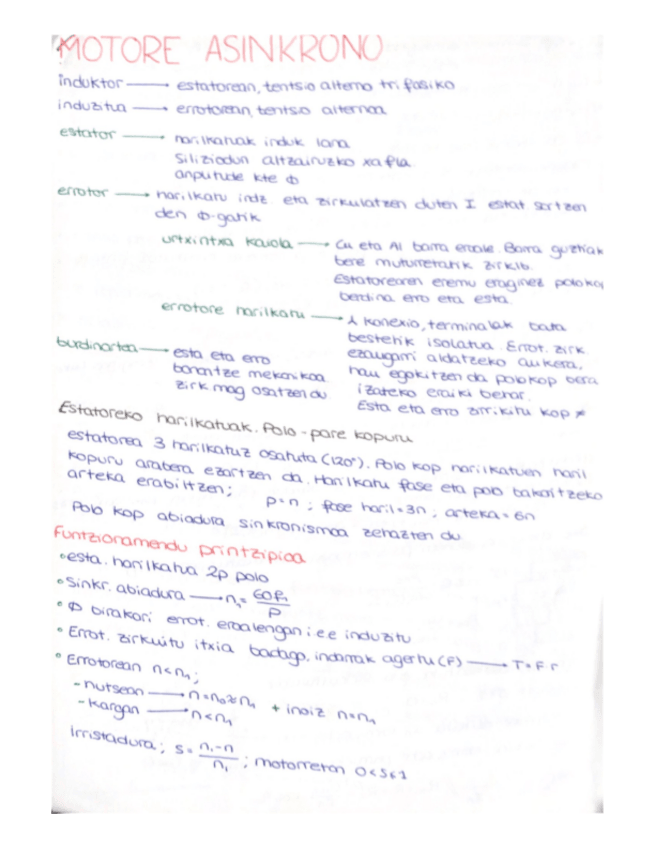 MOTORE ASINKRONO
induktor → estatorean, tentsio alterno trifasiko
induzitua → errotorean, tentsio alternoa
estator → harilkatuak induk lana
Siliziodun altzairuzko xafla
anputude kte Φ
errotor → harilkatu indz eta zirkulatzen duten I estat sortzen
den Φ-gatik
urtxintxa kaiola → Cu eta Al barra eroale. Barra guztiak
bere muturretarik zirklb.
Estatorearen eremu eraginez polokop
berdina erro eta esta.
errotore harilkatu → λ konexio, terminalak bata
bestetik isolatua. Errot. zirk
ezaugarri aldatzeko aukera,
hau egokitzen da polokop bera
izateko eraiki behar.
Esta eta erro zirrikitu kop ≠
burdinartea → esta eta erro
banantze mekanikoa
zirk mag osatzen du
Estatoreko harilkatuak. Polo-pare kopuru
estatorea 3 harilkatuz osatuta (120°). Polo kop harilkatuen haril
kopuru arabera ezartzen da. Harilkatu fase eta polo bakoitzeko
arteka erabiltzen; p=n ; fase haril=3n ; arteka=6n
Polo kop abiadura sinkronismoa zehazten du
Funtzionamendu printzipioa
• esta. harilkatua 2p polo
• Sinkr. abiadura → n₁ = 60f₁/P
• Φ birakari errot. eroalengan i.e.e induzitu
• Errot. zirkuitu itxia badago, indarrak agertu (F) → T=F·r
• Errotorean n<n₁;
- hutsean → n=n₀≈n₁ + inoiz n=n₁
- kargan → n<n₁
Irristadura; s = n₁-n/n₁ ; motorretan 0<s<1